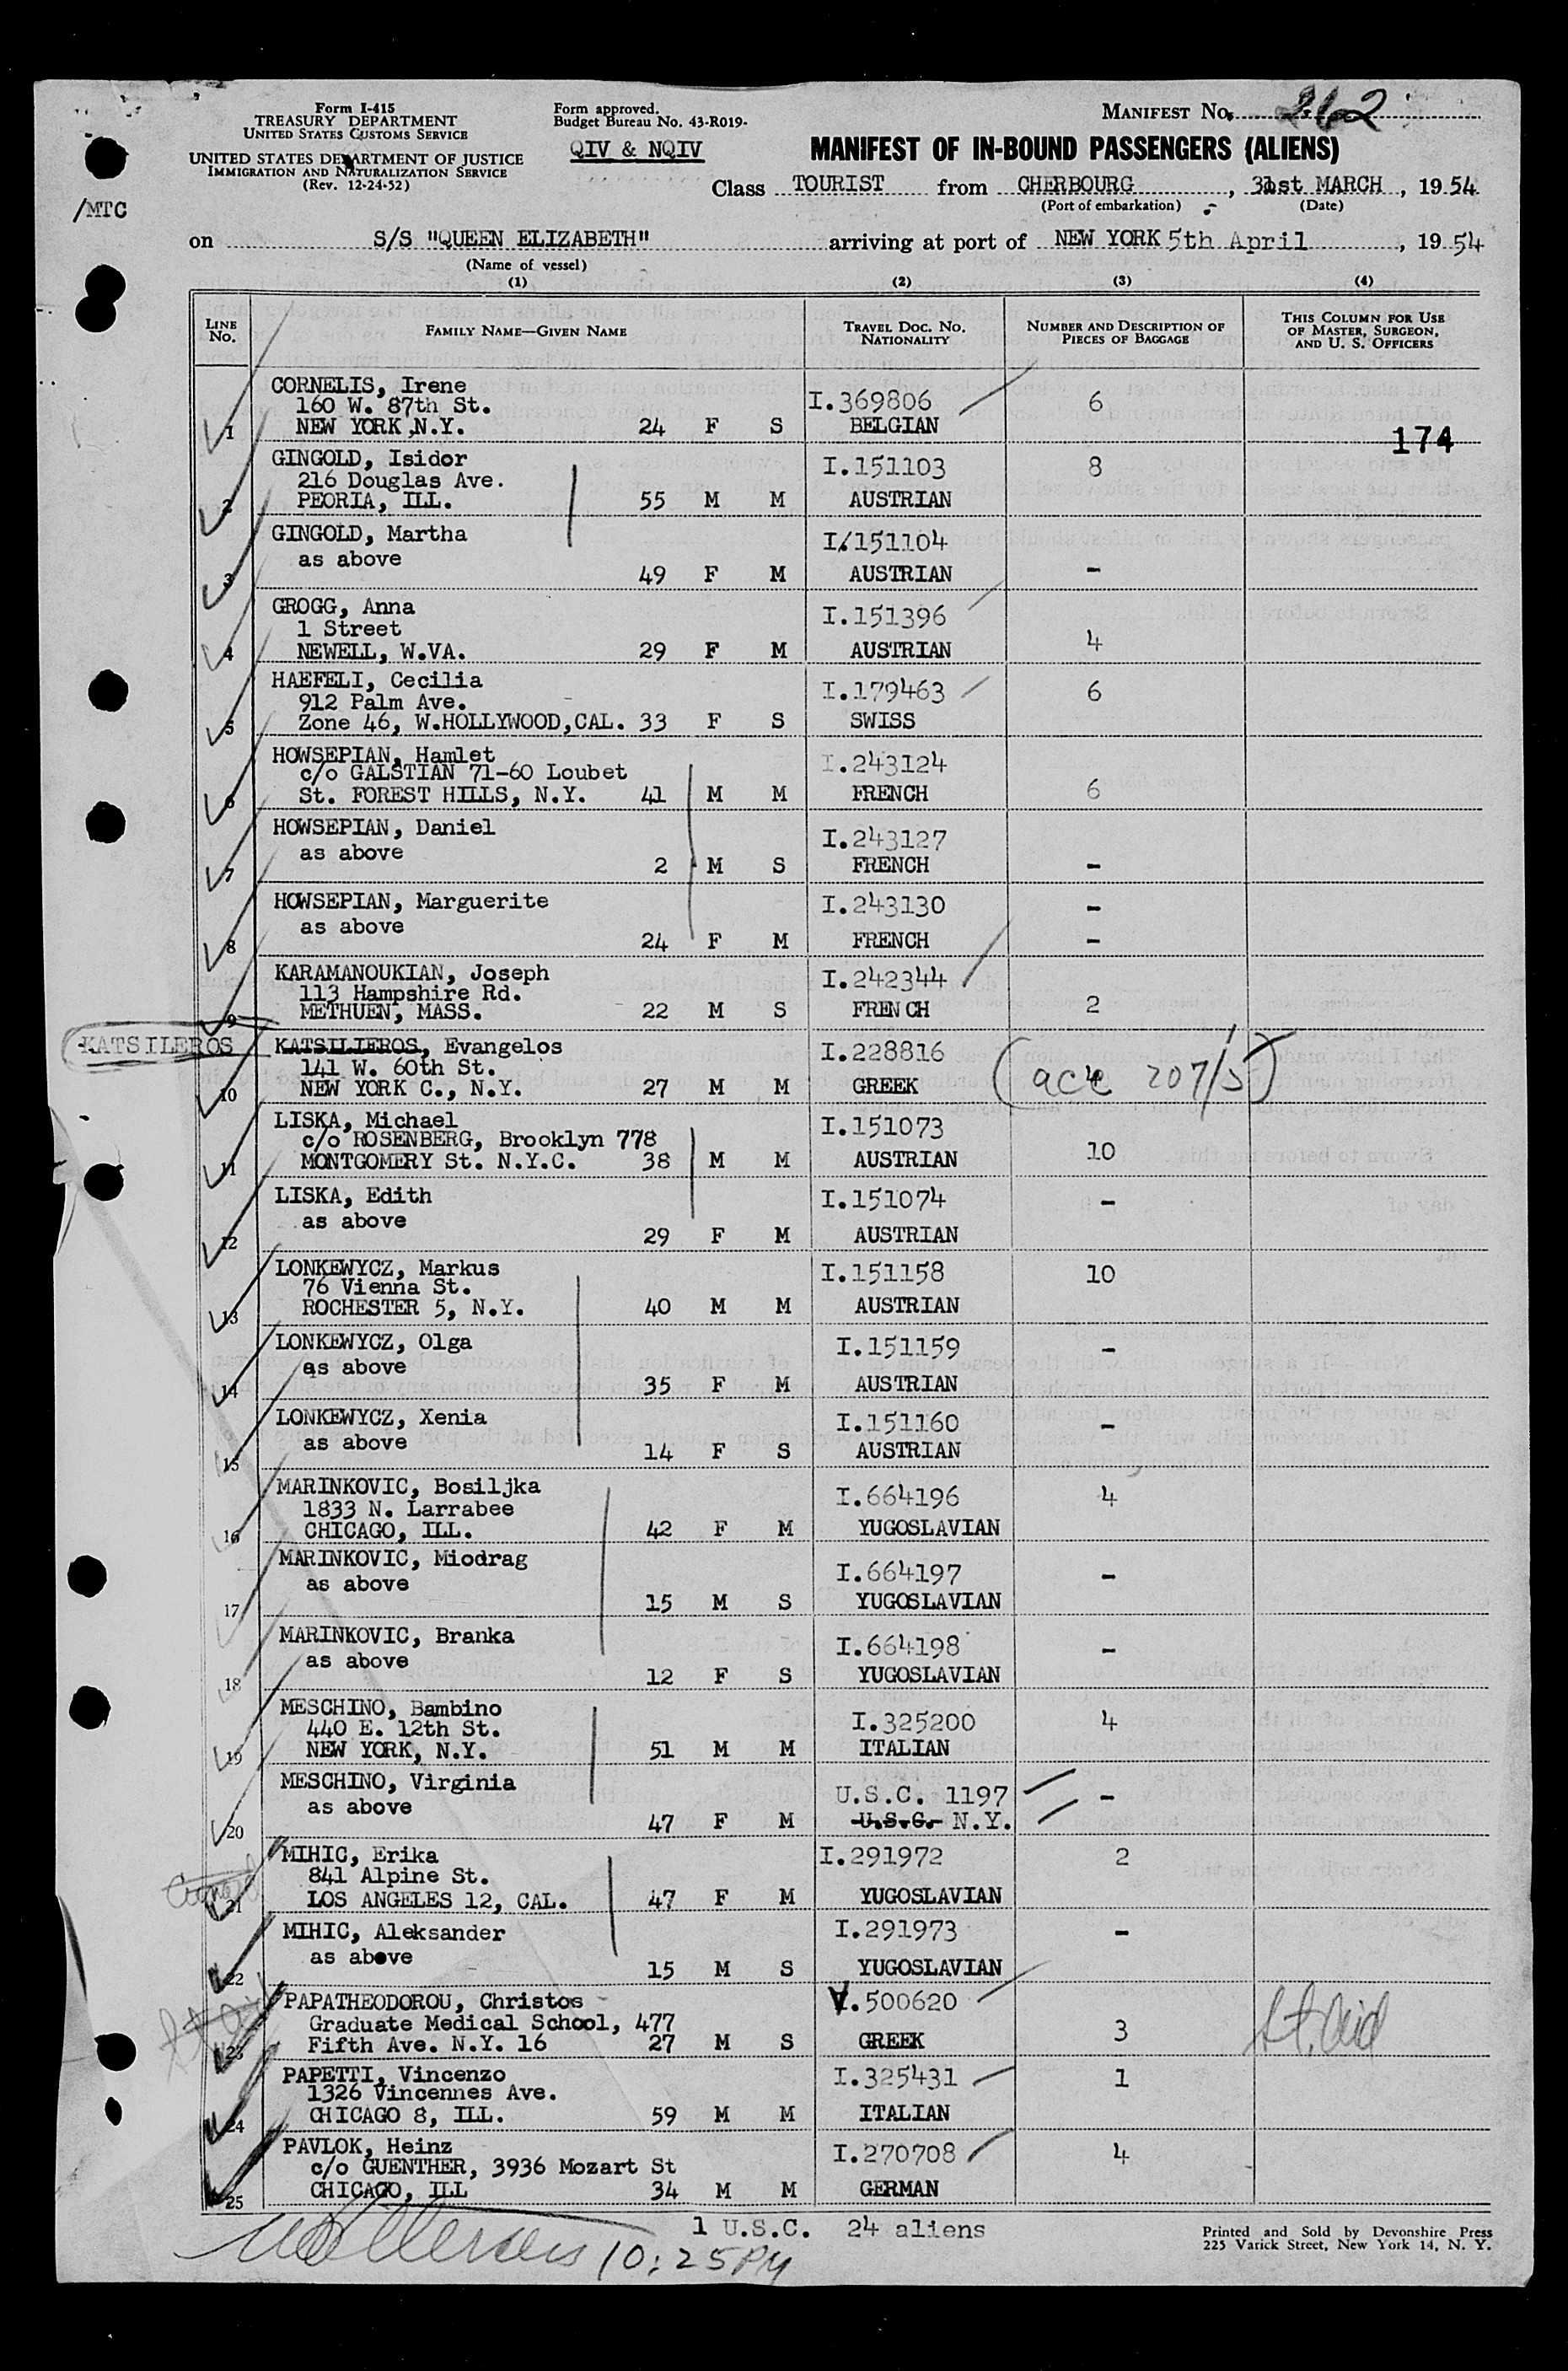 Form I-415
TREASURY DEPARTMENT
UNITED STATES CUSTOMS SERVICE
UNITED STATES DEPARTMENT OF JUSTICE
IMMIGRATION AND NATURALIZATION SERVICE
(Rev. 12-24-52)
/MTC
Form approved.
Budget Bureau No. 43-R019-
QIV & NQIV
MANIFEST No. 262
MANIFEST OF IN-BOUND PASSENGERS (ALIENS)
Class TOURIST from CHERBOURG, 31st MARCH, 1954
(Port of embarkation) (Date)
on S/S "QUEEN ELIZABETH" arriving at port of NEW YORK 5th April, 1954
(Name of vessel)
(1) (2) (3) (4)
LINE No. FAMILY NAME—GIVEN NAME TRAVEL DOC. NO. NATIONALITY NUMBER AND DESCRIPTION OF PIECES OF BAGGAGE THIS COLUMN FOR USE OF MASTER, SURGEON, AND U. S. OFFICERS
174
CORNELIS, Irene I.369806 6
160 W. 87th St.
1 NEW YORK,N.Y. 24 F S BELGIAN
GINGOLD, Isidor I.151103 8
216 Douglas Ave.
2 PEORIA, ILL. 55 M M AUSTRIAN
GINGOLD, Martha I.151104
as above
3 49 F M AUSTRIAN -
GROGG, Anna I.151396
1 Street
4 NEWELL, W.VA. 29 F M AUSTRIAN 4
HAEFELI, Cecilia I.179463 6
912 Palm Ave.
5 Zone 46, W.HOLLYWOOD,CAL. 33 F S SWISS
HOWSEPIAN, Hamlet I.243124
c/o GALSTIAN 71-60 Loubet
6 St. FOREST HILLS, N.Y. 41 M M FRENCH 6
HOWSEPIAN, Daniel I.243127
as above
7 2 M S FRENCH -
HOWSEPIAN, Marguerite I.243130 -
as above
8 24 F M FRENCH -
KARAMANOUKIAN, Joseph I.242344
113 Hampshire Rd.
9 METHUEN, MASS. 22 M S FRENCH 2
KATSILEROS KATSILIEROS, Evangelos I.228816
141 W. 60th St.
10 NEW YORK C., N.Y. 27 M M GREEK (ace 207/5)
LISKA, Michael I.151073
c/o ROSENBERG, Brooklyn 778
11 MONTGOMERY St. N.Y.C. 38 M M AUSTRIAN 10
LISKA, Edith I.151074 -
as above
12 29 F M AUSTRIAN
LONKEWYCZ, Markus I.151158 10
76 Vienna St.
13 ROCHESTER 5, N.Y. 40 M M AUSTRIAN
LONKEWYCZ, Olga I.151159 -
as above
14 35 F M AUSTRIAN
LONKEWYCZ, Xenia I.151160 -
as above
15 14 F S AUSTRIAN
MARINKOVIC, Bosiljka I.664196 4
1833 N. Larrabee
16 CHICAGO, ILL. 42 F M YUGOSLAVIAN
MARINKOVIC, Miodrag I.664197 -
as above
17 15 M S YUGOSLAVIAN
MARINKOVIC, Branka I.664198 -
as above
18 12 F S YUGOSLAVIAN
MESCHINO, Bambino I.325200 4
440 E. 12th St.
19 NEW YORK, N.Y. 51 M M ITALIAN
MESCHINO, Virginia U.S.C. 1197 -
as above
20 47 F M U.S.C. N.Y.
MIHIC, Erika I.291972 2
841 Alpine St.
21 LOS ANGELES 12, CAL. 47 F M YUGOSLAVIAN
MIHIC, Aleksander I.291973 -
as above
22 15 M S YUGOSLAVIAN
PAPATHEODOROU, Christos V.500620
Graduate Medical School, 477 3
23 Fifth Ave. N.Y. 16 27 M S GREEK
PAPETTI, Vincenzo I.325431 1
1326 Vincennes Ave.
24 CHICAGO 8, ILL. 59 M M ITALIAN
PAVLOK, Heinz I.270708 4
c/o GUENTHER, 3936 Mozart St
25 CHICAGO, ILL 34 M M GERMAN
1 U.S.C. 24 aliens
10:25PM
Printed and Sold by Devonshire Press
225 Varick Street, New York 14, N. Y.